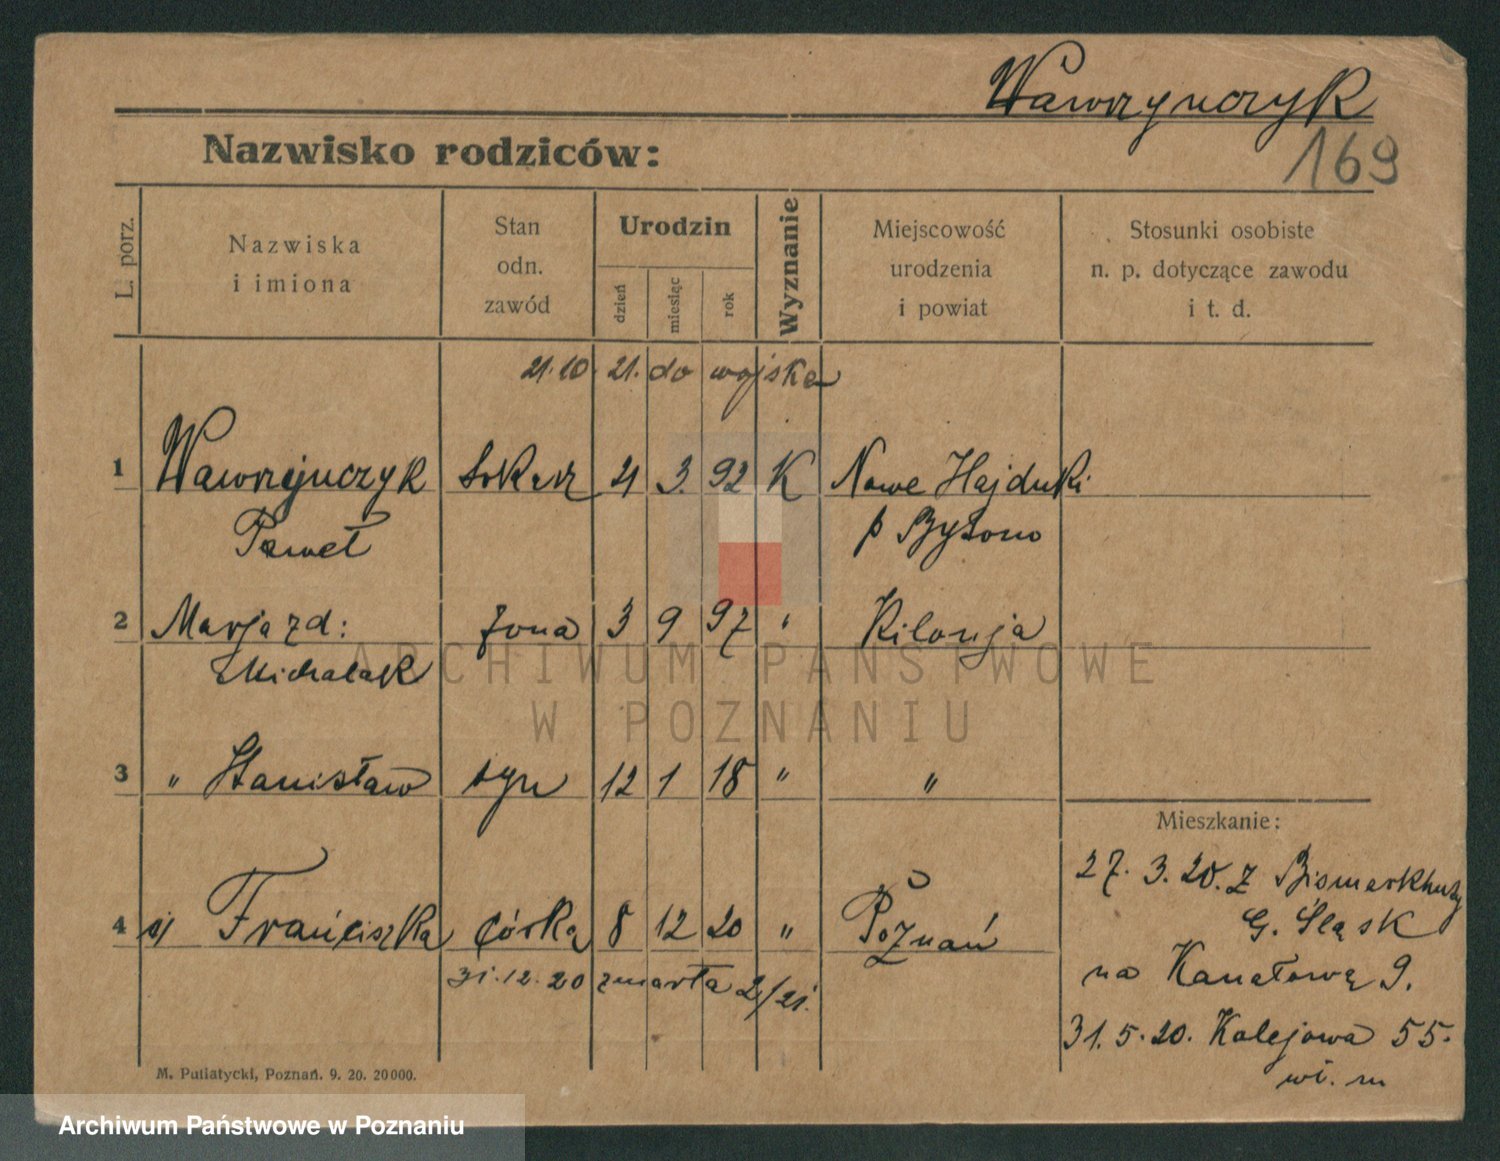 Wawrzynczyk
169
Nazwisko rodziców:
L. porz.
Nazwiska
i imiona
Stan
odn.
zawód
Urodzin
dzień
miesiąc
rok
Wyznanie
Miejscowość
urodzenia
i powiat
Stosunki osobiste
n. p. dotyczące zawodu
i t. d.
21.10 21. do wojska
1 Wawrzynczyk 3. 92 K Nowe Hajduki
Paweł p Bytom
2 Marja zd: żona 3 9 97 "
Michalak
3 " Stanisław syn 12 1 18 " "
Mieszkanie:
27. 3. 20. z Bismarkhuty
G. Śląsk
4 Franciszka córka 8 12 20 " Poznań
na Kanałową 9.
31.12.20 zmarła 2/21.
31. 5. 20. Kolejowa 55.
M. Putiatycki, Poznań. 9. 20. 20000.
ARCHIWUM PAŃSTWOWE
W POZNANIU
Archiwum Państwowe w Poznaniu